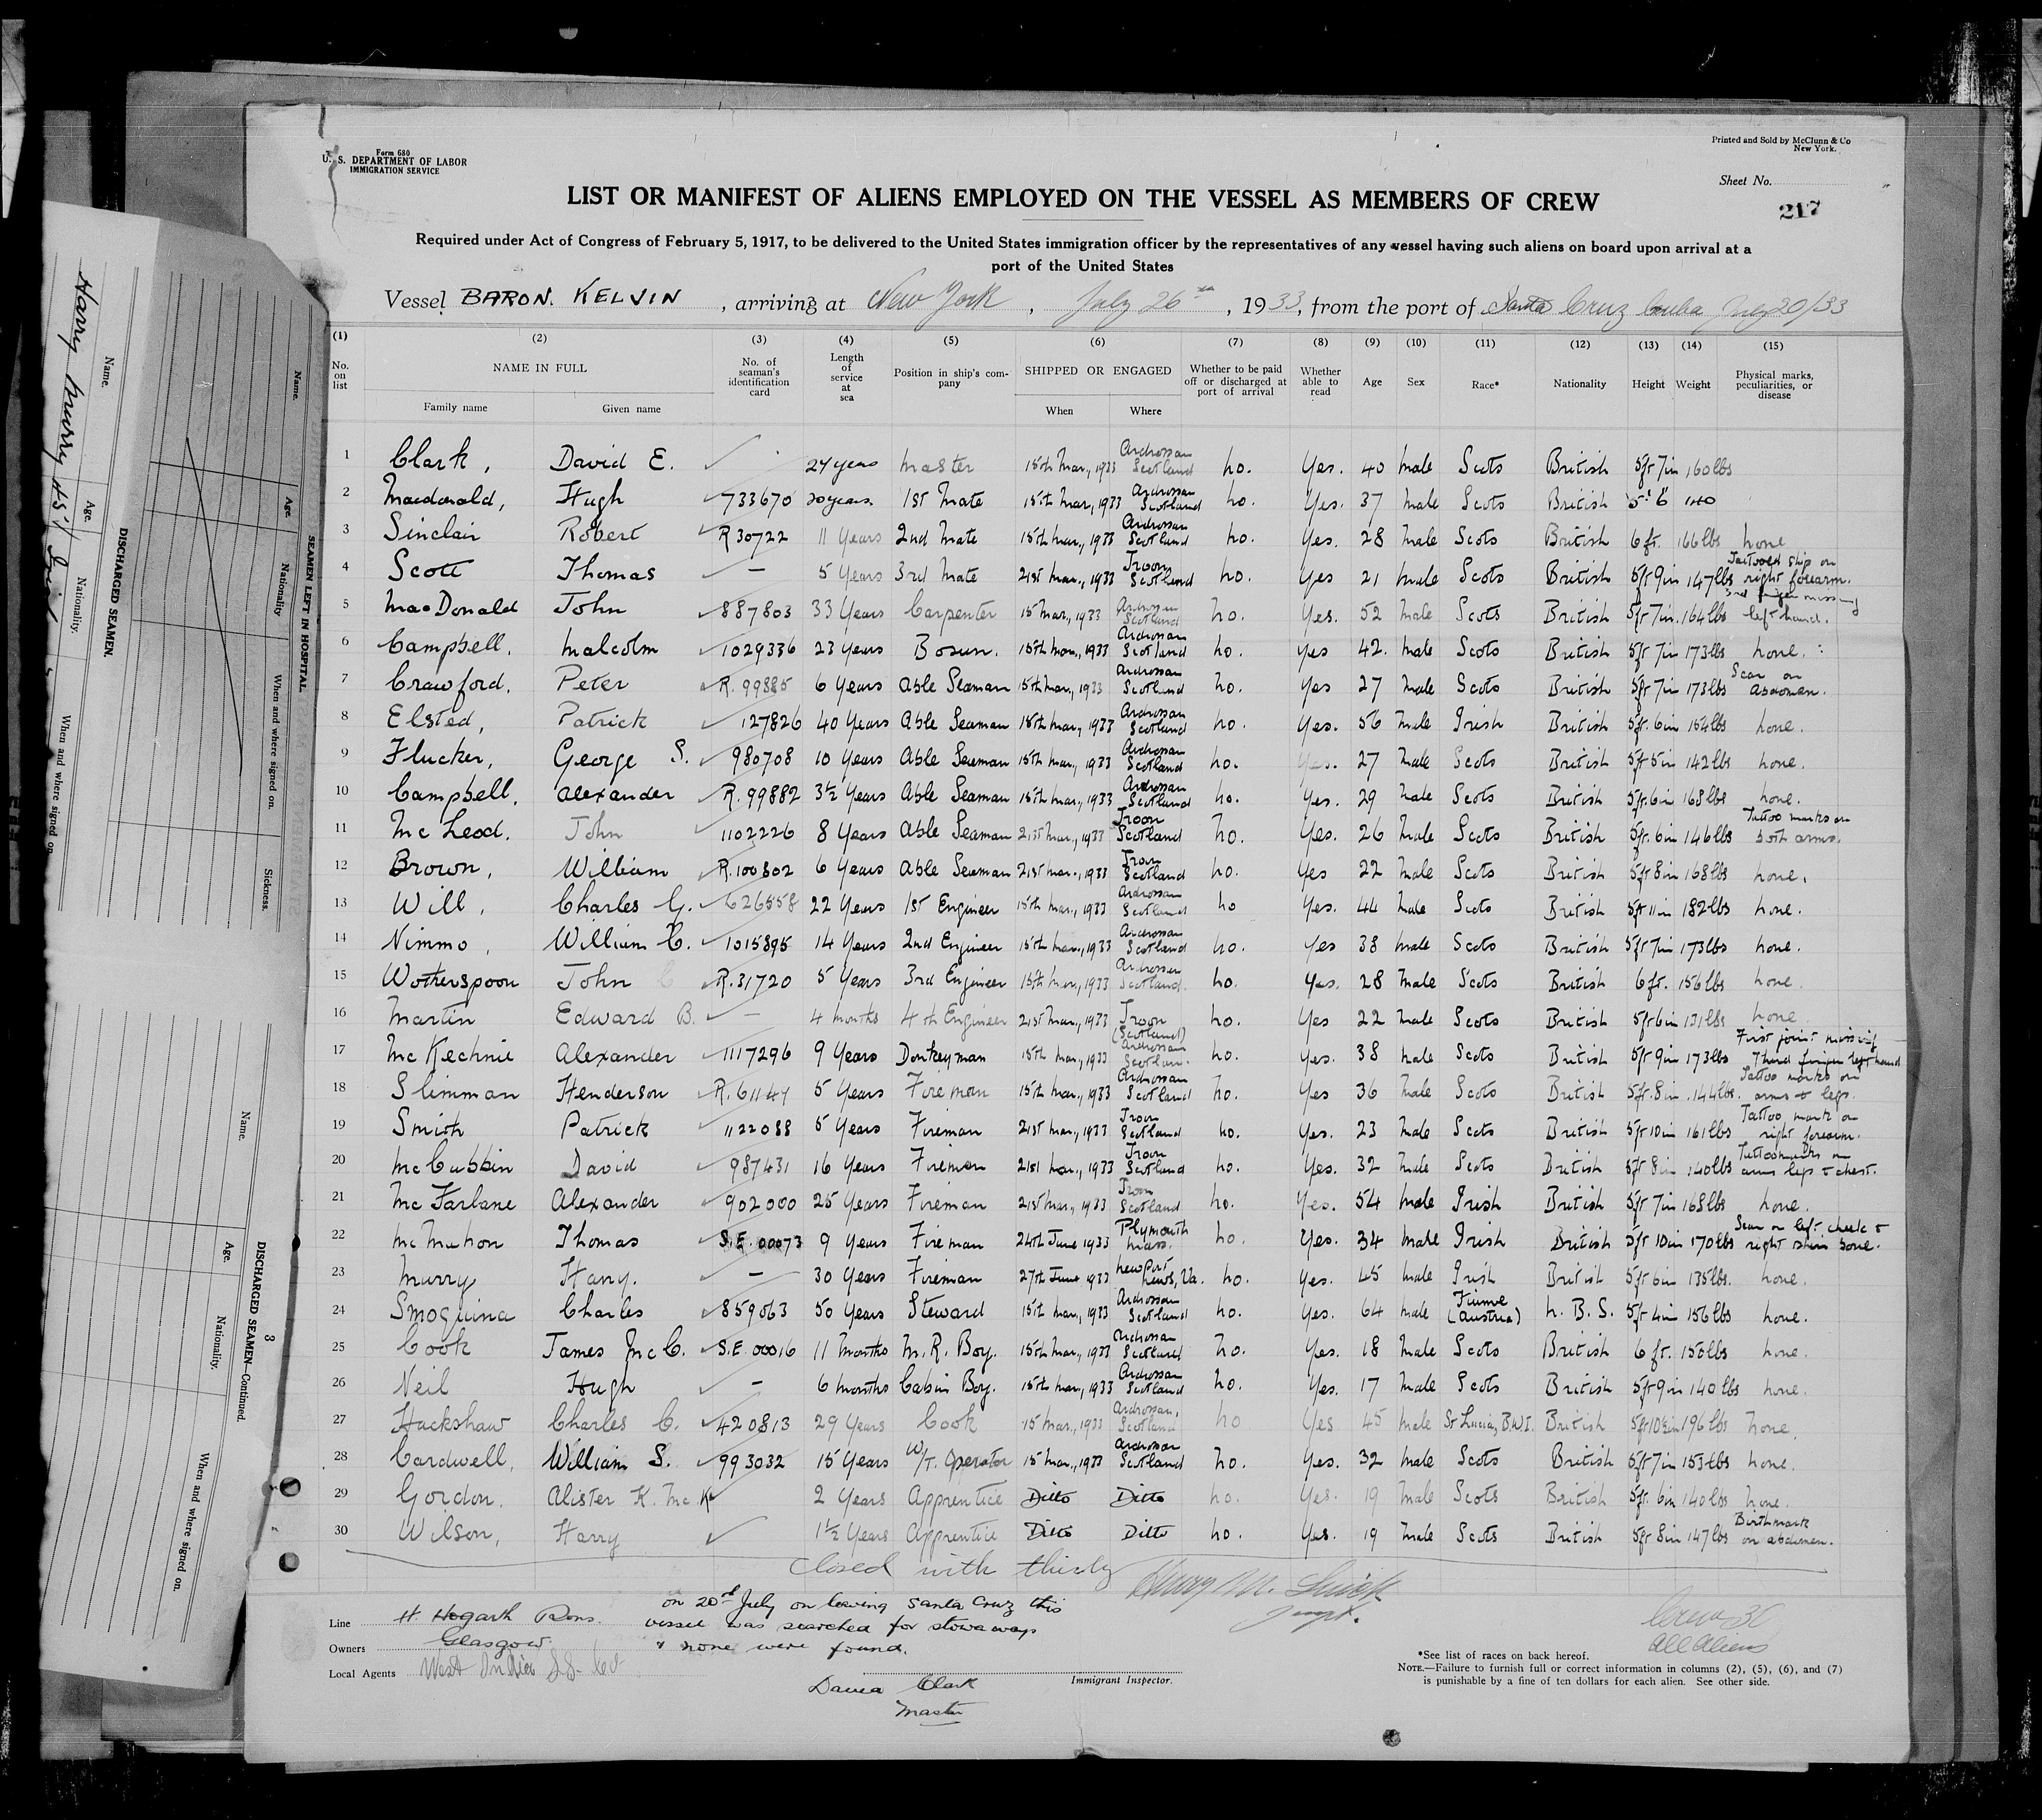 Form 680
U. S. DEPARTMENT OF LABOR
IMMIGRATION SERVICE
Printed and Sold by McClunn & Co
New York.
Sheet No.
217
LIST OR MANIFEST OF ALIENS EMPLOYED ON THE VESSEL AS MEMBERS OF CREW
Required under Act of Congress of February 5, 1917, to be delivered to the United States immigration officer by the representatives of any vessel having such aliens on board upon arrival at a
port of the United States
Vessel BARON. KELVIN, arriving at New York, July 26th, 1933, from the port of Santa Cruz Cuba July 20/33
(1) (2) (3) (4) (5) (6) (7) (8) (9) (10) (11) (12) (13) (14) (15)
No. on list NAME IN FULL Family name Given name No. of seaman's identification card Length of service at sea Position in ship's company SHIPPED OR ENGAGED When Where Whether to be paid off or discharged at port of arrival Whether able to read Age Sex Race* Nationality Height Weight Physical marks, peculiarities, or disease
1 Clark, David E. 27 years Master 15th Mar., 1933 Ardrossan Scotland No. Yes. 40 Male Scots British 5ft 7in 160lbs
2 Macdonald, Hugh 733670 20 years. 1st Mate 15th Mar, 1933 Ardrossan Scotland No. Yes. 37 Male Scots British 5' 6 140
3 Sinclair Robert R 30722 11 Years 2nd Mate 15th Mar., 1933 Ardrossan Scotland No. Yes. 28 Male Scots British 6 ft. 166 lbs None
4 Scott Thomas — 5 Years 3rd Mate 21st Mar., 1933 Troon Scotland No. Yes 21 Male Scots British 5ft 9in 147lbs Tattooed ship on right forearm.
5 MacDonald John 887803 33 Years Carpenter 15 Mar., 1933 Ardrossan Scotland No. Yes. 52 Male Scots British 5ft 7in. 164lbs 3rd finger missing left hand.
6 Campbell. Malcolm 1029336 23 Years Bosun. 15th Mar., 1933 Ardrossan Scotland No. Yes 42. Male Scots British 5ft 7in 173lbs None.
7 Crawford. Peter R. 99885 6 Years Able Seaman 15th Mar., 1933 Ardrossan Scotland No. Yes 27 Male Scots British 5ft 7in 173lbs Scar on abdomen.
8 Elsted, Patrick 127826 40 Years Able Seaman 15th Mar., 1933 Ardrossan Scotland No. Yes. 56 Male Irish British 5ft. 6in 154lbs None.
9 Flucker, George S. 980708 10 Years Able Seaman 15th Mar., 1933 Ardrossan Scotland No. Yes. 27 Male Scots British 5ft 5in 142lbs None.
10 Campbell, Alexander R. 99882 3½ Years Able Seaman 15th Mar., 1933 Ardrossan Scotland No. Yes. 29 Male Scots British 5ft. 6in 168lbs None.
11 McLeod. John 1102226 8 Years Able Seaman 21st Mar., 1933 Troon Scotland No. Yes. 26 Male Scots British 5ft. 6in 146lbs Tattoo marks on both arms.
12 Brown, William R. 100302 6 Years Able Seaman 21st Mar., 1933 Troon Scotland No. Yes 22 Male Scots British 5ft 8in 168lbs None.
13 Will, Charles G. 626558 22 Years 1st Engineer 15th Mar., 1933 Ardrossan Scotland No Yes. 44 Male Scots British 5ft 11in 182lbs None.
14 Nimmo, William C. 1015895 14 Years 2nd Engineer 15th Mar., 1933 Ardrossan Scotland No. Yes 38 Male Scots British 5ft 7in 173lbs None.
15 Wotherspoon John C R. 31720 5 Years 3rd Engineer 15th Mar., 1933 Ardrossan Scotland. No. Yes. 28 Male Scots British 6 ft. 156 lbs None.
16 Martin Edward B. — 4 months 4th Engineer 21st Mar., 1933 Troon (Scotland) No. Yes 22 Male Scots British 5ft 6in 131lbs None
17 McKechnie Alexander 1117296 9 Years Donkeyman 15th Mar, 1933 Ardrossan Scotland. No. Yes. 38 Male Scots British 5ft 9in 173lbs First joint missing Third finger left hand
18 Slimman Henderson R. 61147 5 Years Fireman 15th Mar., 1933 Ardrossan Scotland No. Yes 36 Male Scots British 5ft. 8in. 144lbs. Tattoo marks on arms & legs.
19 Smith Patrick 1122088 5 Years Fireman 21st Mar., 1933 Troon Scotland No. Yes. 23 Male Scots British 5ft 10in 161lbs Tattoo mark on right forearm.
20 McCubbin David 987431 16 Years Fireman 21st Mar., 1933 Troon Scotland No. Yes. 32 Male Scots British 5ft 8in 140lbs Tattoo marks on arms legs & chest.
21 McFarlane Alexander 902000 25 Years Fireman 21st Mar., 1933 Troon Scotland No. Yes. 54 Male Irish British 5ft 7in 168lbs None.
22 McMahon Thomas S.E. 00073 9 Years Fireman 24th June 1933 Plymouth Mass. No. Yes. 34 Male Irish British 5ft 10in 170lbs Scar on left cheek & right shin bone.
23 Murry Harry. — 30 Years Fireman 27th June 1933 Newport News, Va. No. Yes. 45 Male Irish British 5ft 6in 135lbs. None.
24 Smoquina Charles 859063 50 Years Steward 15th Mar., 1933 Ardrossan Scotland No. Yes. 64 Male Fiume (Austria) N. B. S. 5ft 4in 156lbs None.
25 Cook James McC. S.E. 00016 11 Months M. R. Boy. 15th Mar., 1933 Ardrossan Scotland No. Yes. 18 Male Scots British 6 ft. 150lbs None.
26 Neil Hugh — 6 months Cabin Boy. 15th Mar., 1933 Ardrossan Scotland No. Yes. 17 Male Scots British 5ft 9in 140lbs None.
27 Hackshaw Charles C. 420813 29 Years Cook 15 Mar., 1933 Ardrossan, Scotland No Yes 45 Male St Lucia, B.W.I. British 5ft 10½in 196lbs None.
28 Cardwell, William S. 993032 15 Years W/T. Operator 15 Mar., 1933 Ardrossan Scotland No. Yes. 32 Male Scots British 5ft 7in 153lbs None.
29 Gordon. Alister K. McK 2 Years Apprentice Ditto Ditto No. Yes. 19 Male Scots British 5ft. 6in 140lbs None.
30 Wilson, Harry 1½ Years Apprentice Ditto Ditto No. Yes. 19 Male Scots British 5ft 8in 147lbs Birthmark on abdomen.
Closed with thirty
Line H. Hogarth Sons.
Owners Glasgow
Local Agents West Indies S.S. Co
On 20th July on leaving Santa Cruz this
vessel was searched for stowaways
& none were found.
David Clark
Master
Immigrant Inspector.
Crew 30
All Aliens
*See list of races on back hereof.
NOTE.—Failure to furnish full or correct information in columns (2), (5), (6), and (7)
is punishable by a fine of ten dollars for each alien. See other side.
SEAMEN LEFT IN HOSPITAL
Name. Age. Nationality When and where signed on. Sickness.
DISCHARGED SEAMEN.
Name. Age. Nationality. When and where signed on
Harry Murry 45
3
DISCHARGED SEAMEN—Continued.
Name. Age. Nationality. When and where signed on.